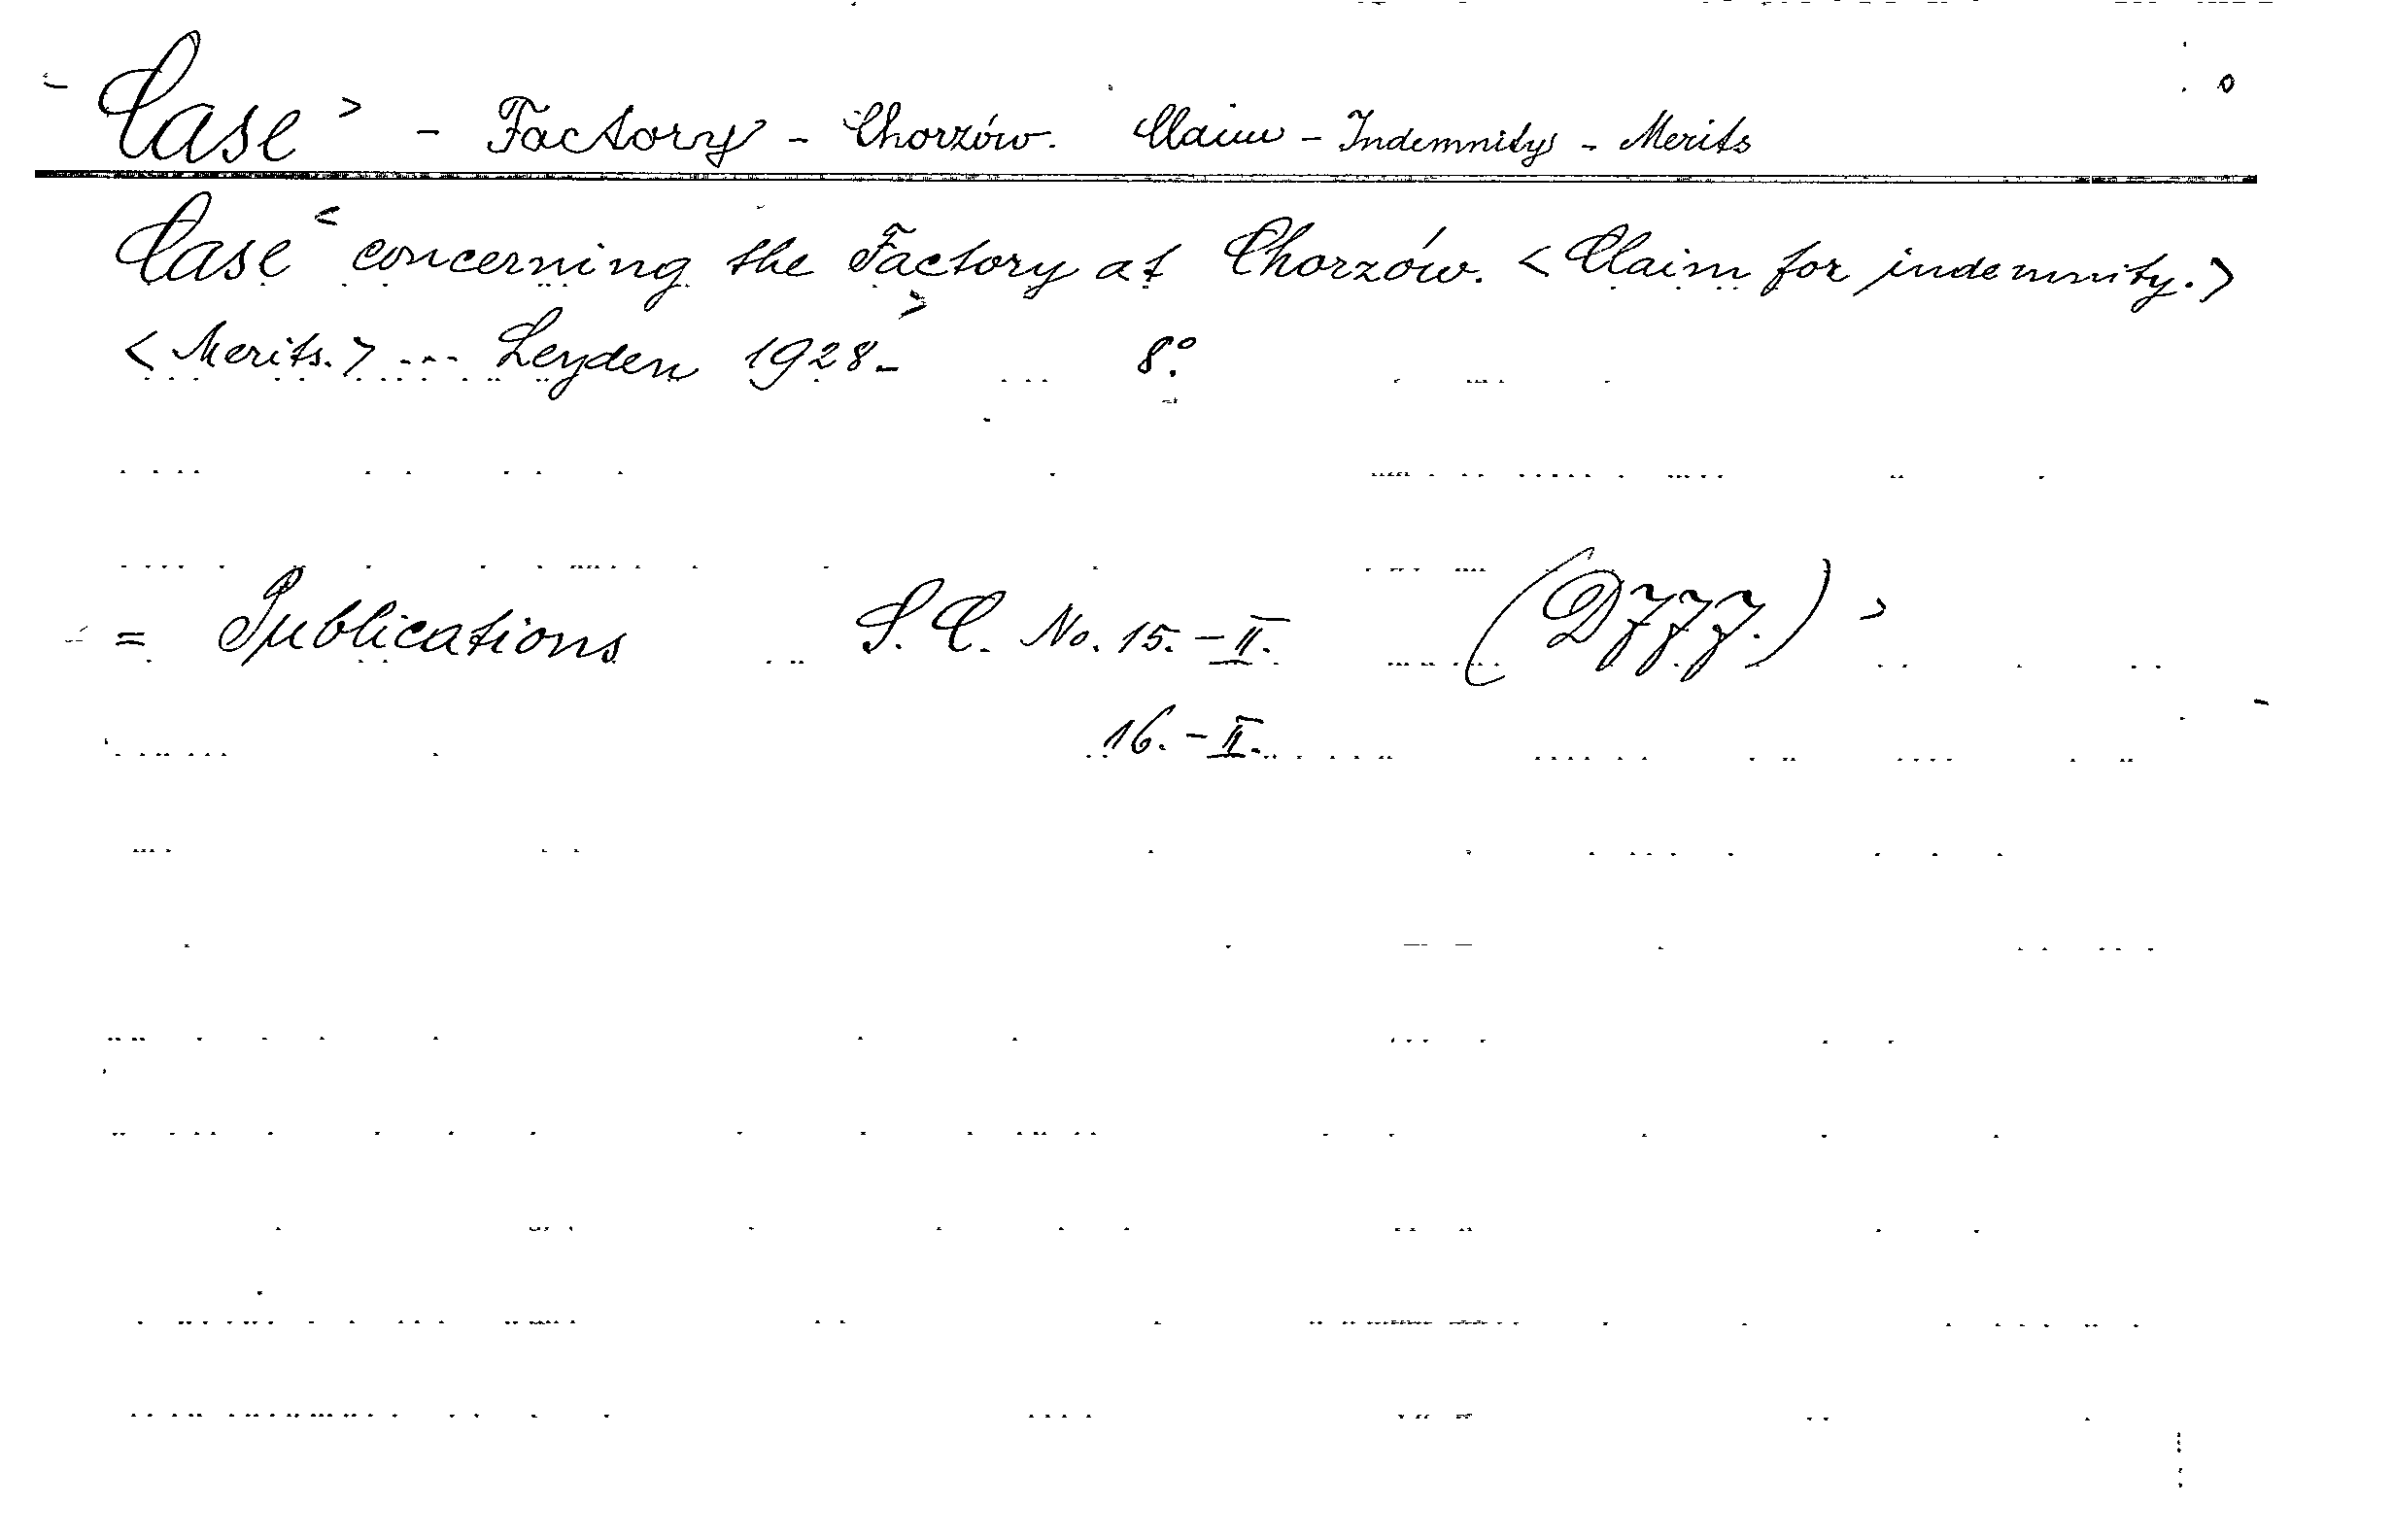 Case > - Factory - Chorzów. Claim - Indemnity - Merits
Case < concerning the Factory at Chorzów. < Claim for indemnity. >
< Merits. > --- Leyden 1928- > 8°.
= Publications S. C. No. 15. - II. (DJJJ.) >
16. - II.